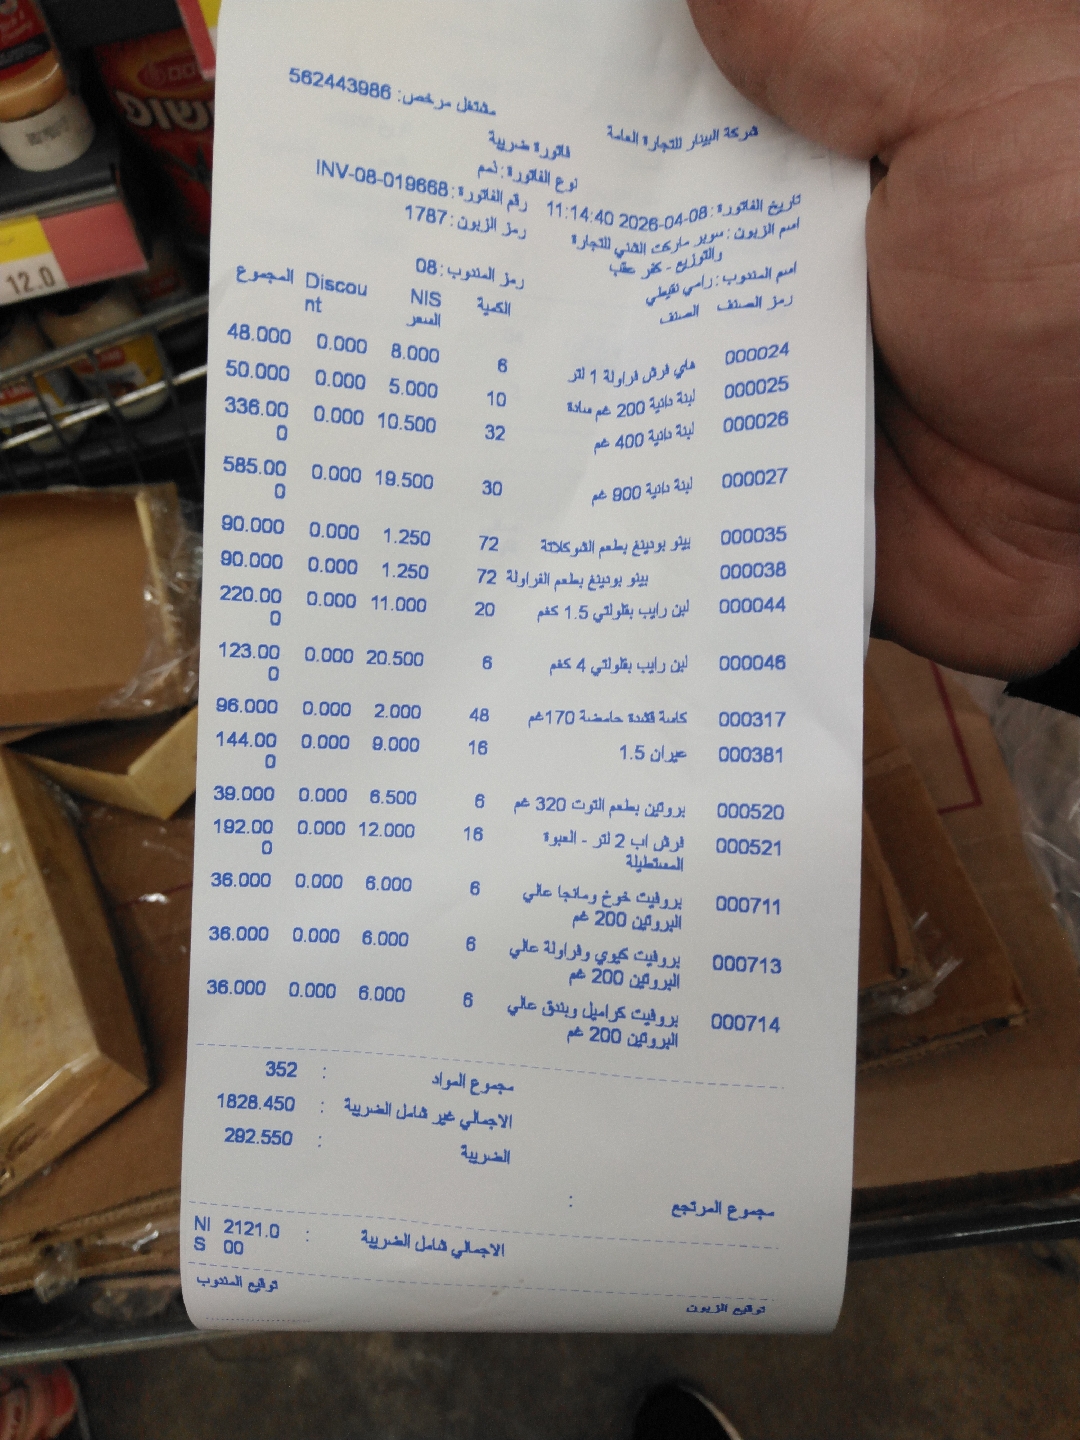 مشتغل مرخص: 562443986
شركة البينار للتجارة العامة
فاتورة ضريبة
نوع الفاتورة: ذمم
تاريخ الفاتورة: 2026-04-08 11:14:40 رقم الفاتورة: INV-08-019668
اسم الزبون: سوبر ماركت الشني للتجارة والتوزيع - كفر عقب رمز الزبون: 1787
اسم المندوب: رامي نقيطي رمز المندوب: 08
رمز الصنف الصنف الكمية NIS السعر Discount المجموع
000024 هاي فرش فراولة 1 لتر 6 8.000 0.000 48.000
000025 لبنة دانية 200 غم سادة 10 5.000 0.000 50.000
000026 لبنة دانية 400 غم 32 10.500 0.000 336.000
000027 لبنة دانية 900 غم 30 19.500 0.000 585.000
000035 بينو بودينغ بطعم الشوكلاتة 72 1.250 0.000 90.000
000038 بينو بودينغ بطعم الفراولة 72 1.250 0.000 90.000
000044 لبن رايب بقلولتي 1.5 كغم 20 11.000 0.000 220.000
000046 لبن رايب بقلولتي 4 كغم 6 20.500 0.000 123.000
000317 كاسة قشدة حامضة 170غم 48 2.000 0.000 96.000
000381 عيران 1.5 16 9.000 0.000 144.000
000520 بروتين بطعم التوت 320 غم 6 6.500 0.000 39.000
000521 فرش اب 2 لتر - العبوة المستطيلة 16 12.000 0.000 192.000
000711 بروفيت خوخ ومانجا عالي البروتين 200 غم 6 6.000 0.000 36.000
000713 بروفيت كيوي وفراولة عالي البروتين 200 غم 6 6.000 0.000 36.000
000714 بروفيت كراميل وبندق عالي البروتين 200 غم 6 6.000 0.000 36.000
مجموع المواد : 352
الاجمالي غير شامل الضريبة : 1828.450
الضريبة : 292.550
مجموع المرتجع :
الاجمالي شامل الضريبة : 2121.000 NIS
توقيع الزبون توقيع المندوب
12.0